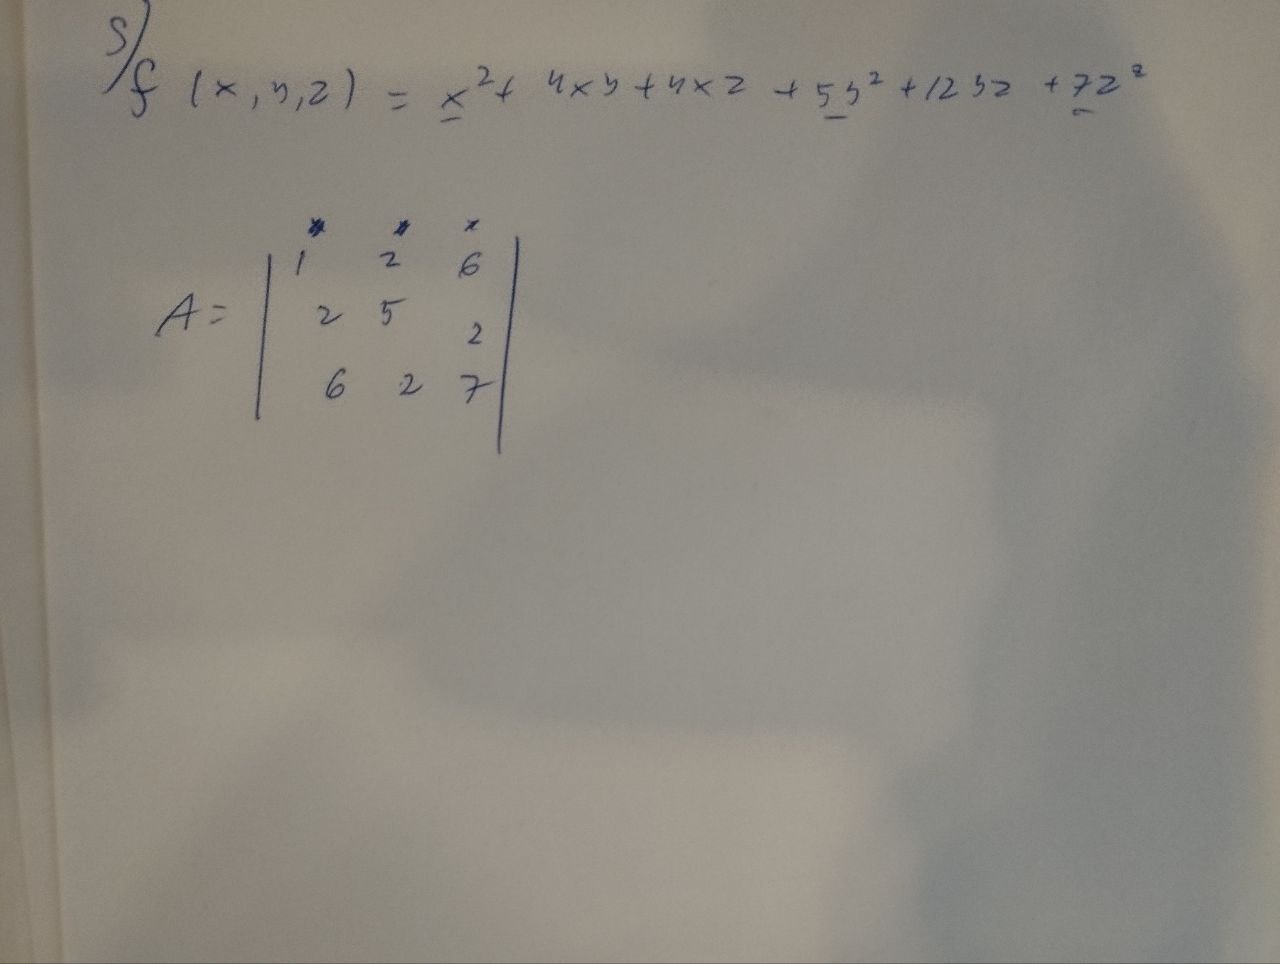 S/
f (x, y, z) = x² + 4xy + 4xz + 5y² + 12yz + 7z²
1 2 6
A = 2 5 2
6 2 7